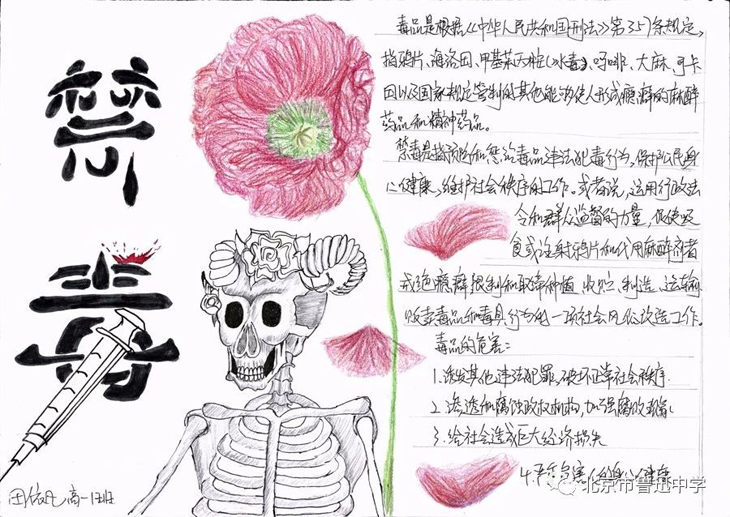 禁
毒
毒品是根据《中华人民共和国刑法》第357条规定,
指鸦片、海洛因、甲基苯丙胺(冰毒)、吗啡、大麻、可卡
因以及国家规定管制的其他能够使人形成瘾癖的麻醉
药品和精神药品。
禁毒是指预防和惩治毒品违法犯毒行为,保护公民身
心健康,维护社会秩序的工作。或者说,运用行政法
令和群众监督的力量,促使吸
食或注射鸦片和代用麻醉剂者
戒绝瘾癖,限制和取缔种植、收贮、制造、运输
贩卖毒品和毒具行为的一项社会风俗改造工作。
毒品的危害:
1.诱发其他违法犯罪,破坏正常社会秩序
2.渗透和腐蚀政权机构,加强腐败现象
3.给社会造成巨大经济损失
4.严重危害人的身心健康
高一1班
北京市鲁迅中学